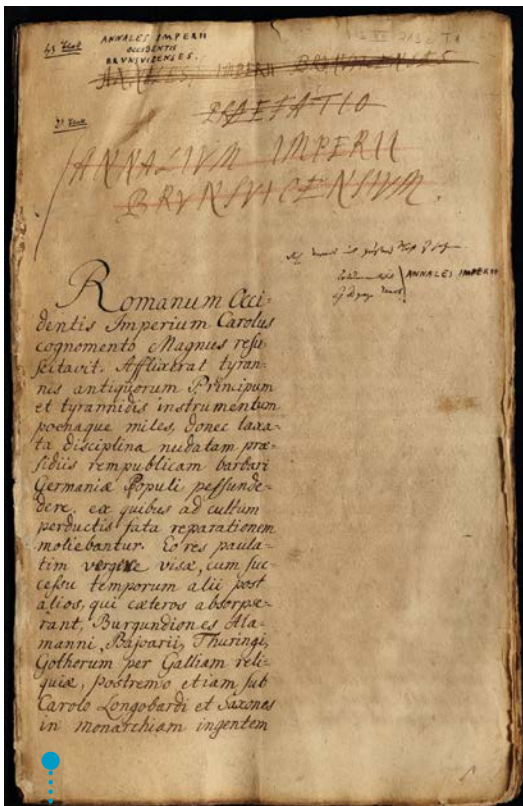 ANNALES IMPERII
OCCIDENTIS
BRVNSVICENSES.
ANNALES IMPERII BRUNSVICENSES
PRAEFATIO
ANNALIVM IMPERII
BRVNSVICENSIVM.
ANNALES IMPERII
Romanum Occi-
dentis Imperium Carolus
cognomento Magnus resu-
scitavit. Afflixerat tyran-
nis antiquorum Principum
et tyrannidis instrumentum
pœnaque miles, donec laxa-
ta disciplina nudatam præ-
sidiis rempublicam barbari
Germaniæ Populi pessunde-
dere, ex quibus ad cultum
perductis fata reparationem
moliebantur. Eo res paula-
tim vergere visæ, cum suc-
cessu temporum alii post
alios, qui cæteros absorpse-
rant, Burgundiones Ala-
manni, Bajoarii, Thuringi,
Gothorum per Galliam reli-
quiæ, postremo etiam sub
Carolo Longobardi et Saxones
in monarchiam ingentem